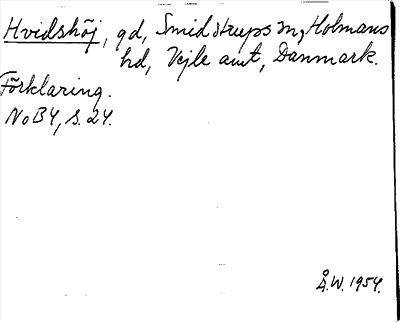 Hvidshöj, gd, Smidstrups sn, Holmans
hd, Vejle amt, Danmark.
Förklaring.
NoB4, s. 24.
Å.W. 1954.